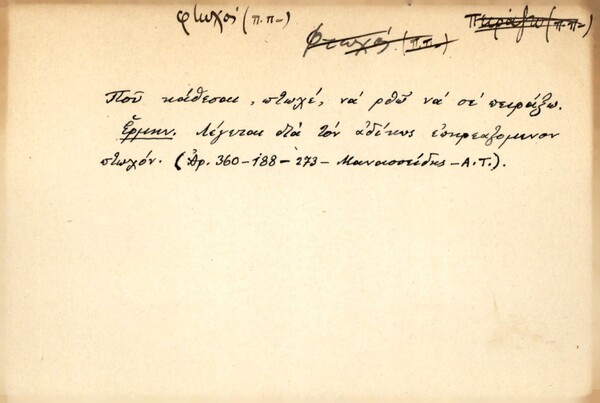 φτωχός (π.π.-)
φτωχός. (π.π.-)
πειράζω (π.π.-)
Ποῦ κάθεσαι, πτωχέ, νά ρθῶ νά σέ πειράξω.
Ἑρμην. Λέγεται διά τόν ἀδίκως ἐπηρεαζόμενον
πτωχόν. (Ἀρ. 360-188-273-Μανασσείδης-Α.Τ.).